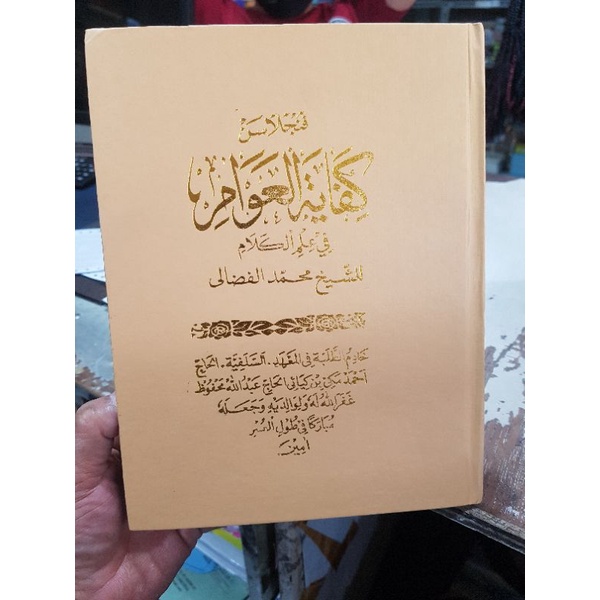 فنجلاسن
كِفَايَةُ الْعَوَامِ
فِيْ عِلْمِ الْكَلَامِ
للشّيخ محمّد الفضالى
خَادِمُ الطَّلَبَةِ فِى الْمَعْهَدِ. السَّلَفِيَّةِ. الحَاجّ
اَحْمَدْ مَكِّى بِنْ كِيَاهِى الحَاجّ عَبْدُ اللهْ مَحْفُوظْ
غَفَرَ اللهُ لَهُ وَلِوَالِدَيْهِ وَجَعَلَهُ
مُبَارَكًا فِى طُوْلِ الْعُمُرِ
اٰمِيْنَ